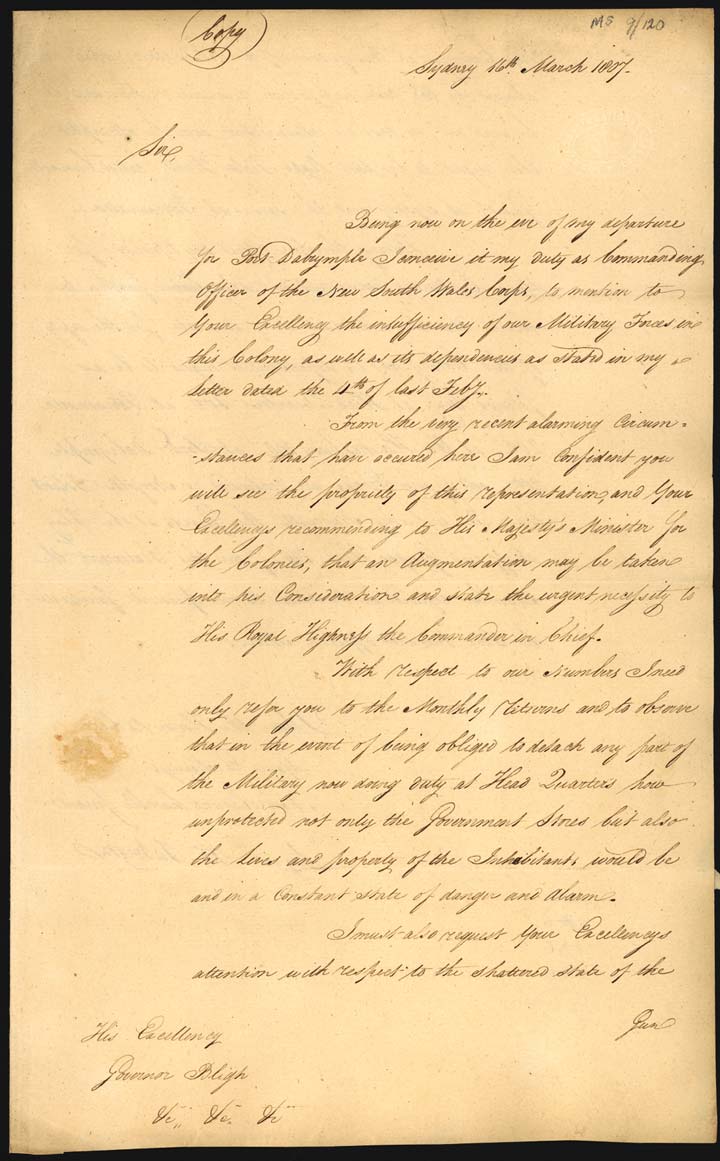 (Copy)
MS 9/120
Sydney 16th. March 1807.
Sir,
Being now on the eve of my departure
for Port Dalrymple I conceive it my duty as Commanding
Officer of the New South Wales Corps, to mention to
Your Excellency the insufficiency of our Military Forces in
this Colony, as well as its dependencies as stated in my
letter dated the 4th of last Feby.
From the very recent alarming Circum=
-stances that have occured here I am Confident you
will see the propriety of this representation, and Your
Excellencys recommending to His Majesty's Minister for
the Colonies, that an Augmentation may be taken
into his Consideration and state the urgent necessity to
His Royal Highness the Commander in Chief.
With respect to our Numbers I need
only refer you to the Monthly returns and to observe
that in the event of being obliged to detach any part of
the Military now doing duty at Head Quarters how
unprotected not only the Government Stores but also
the Lives and property of the Inhabitants would be
and in a Constant state of danger and Alarm.
I must also request Your Excellencys
attention with respect to the shattered state of the
Gun
His Excellency
Governor Bligh
&c,, &c. &c